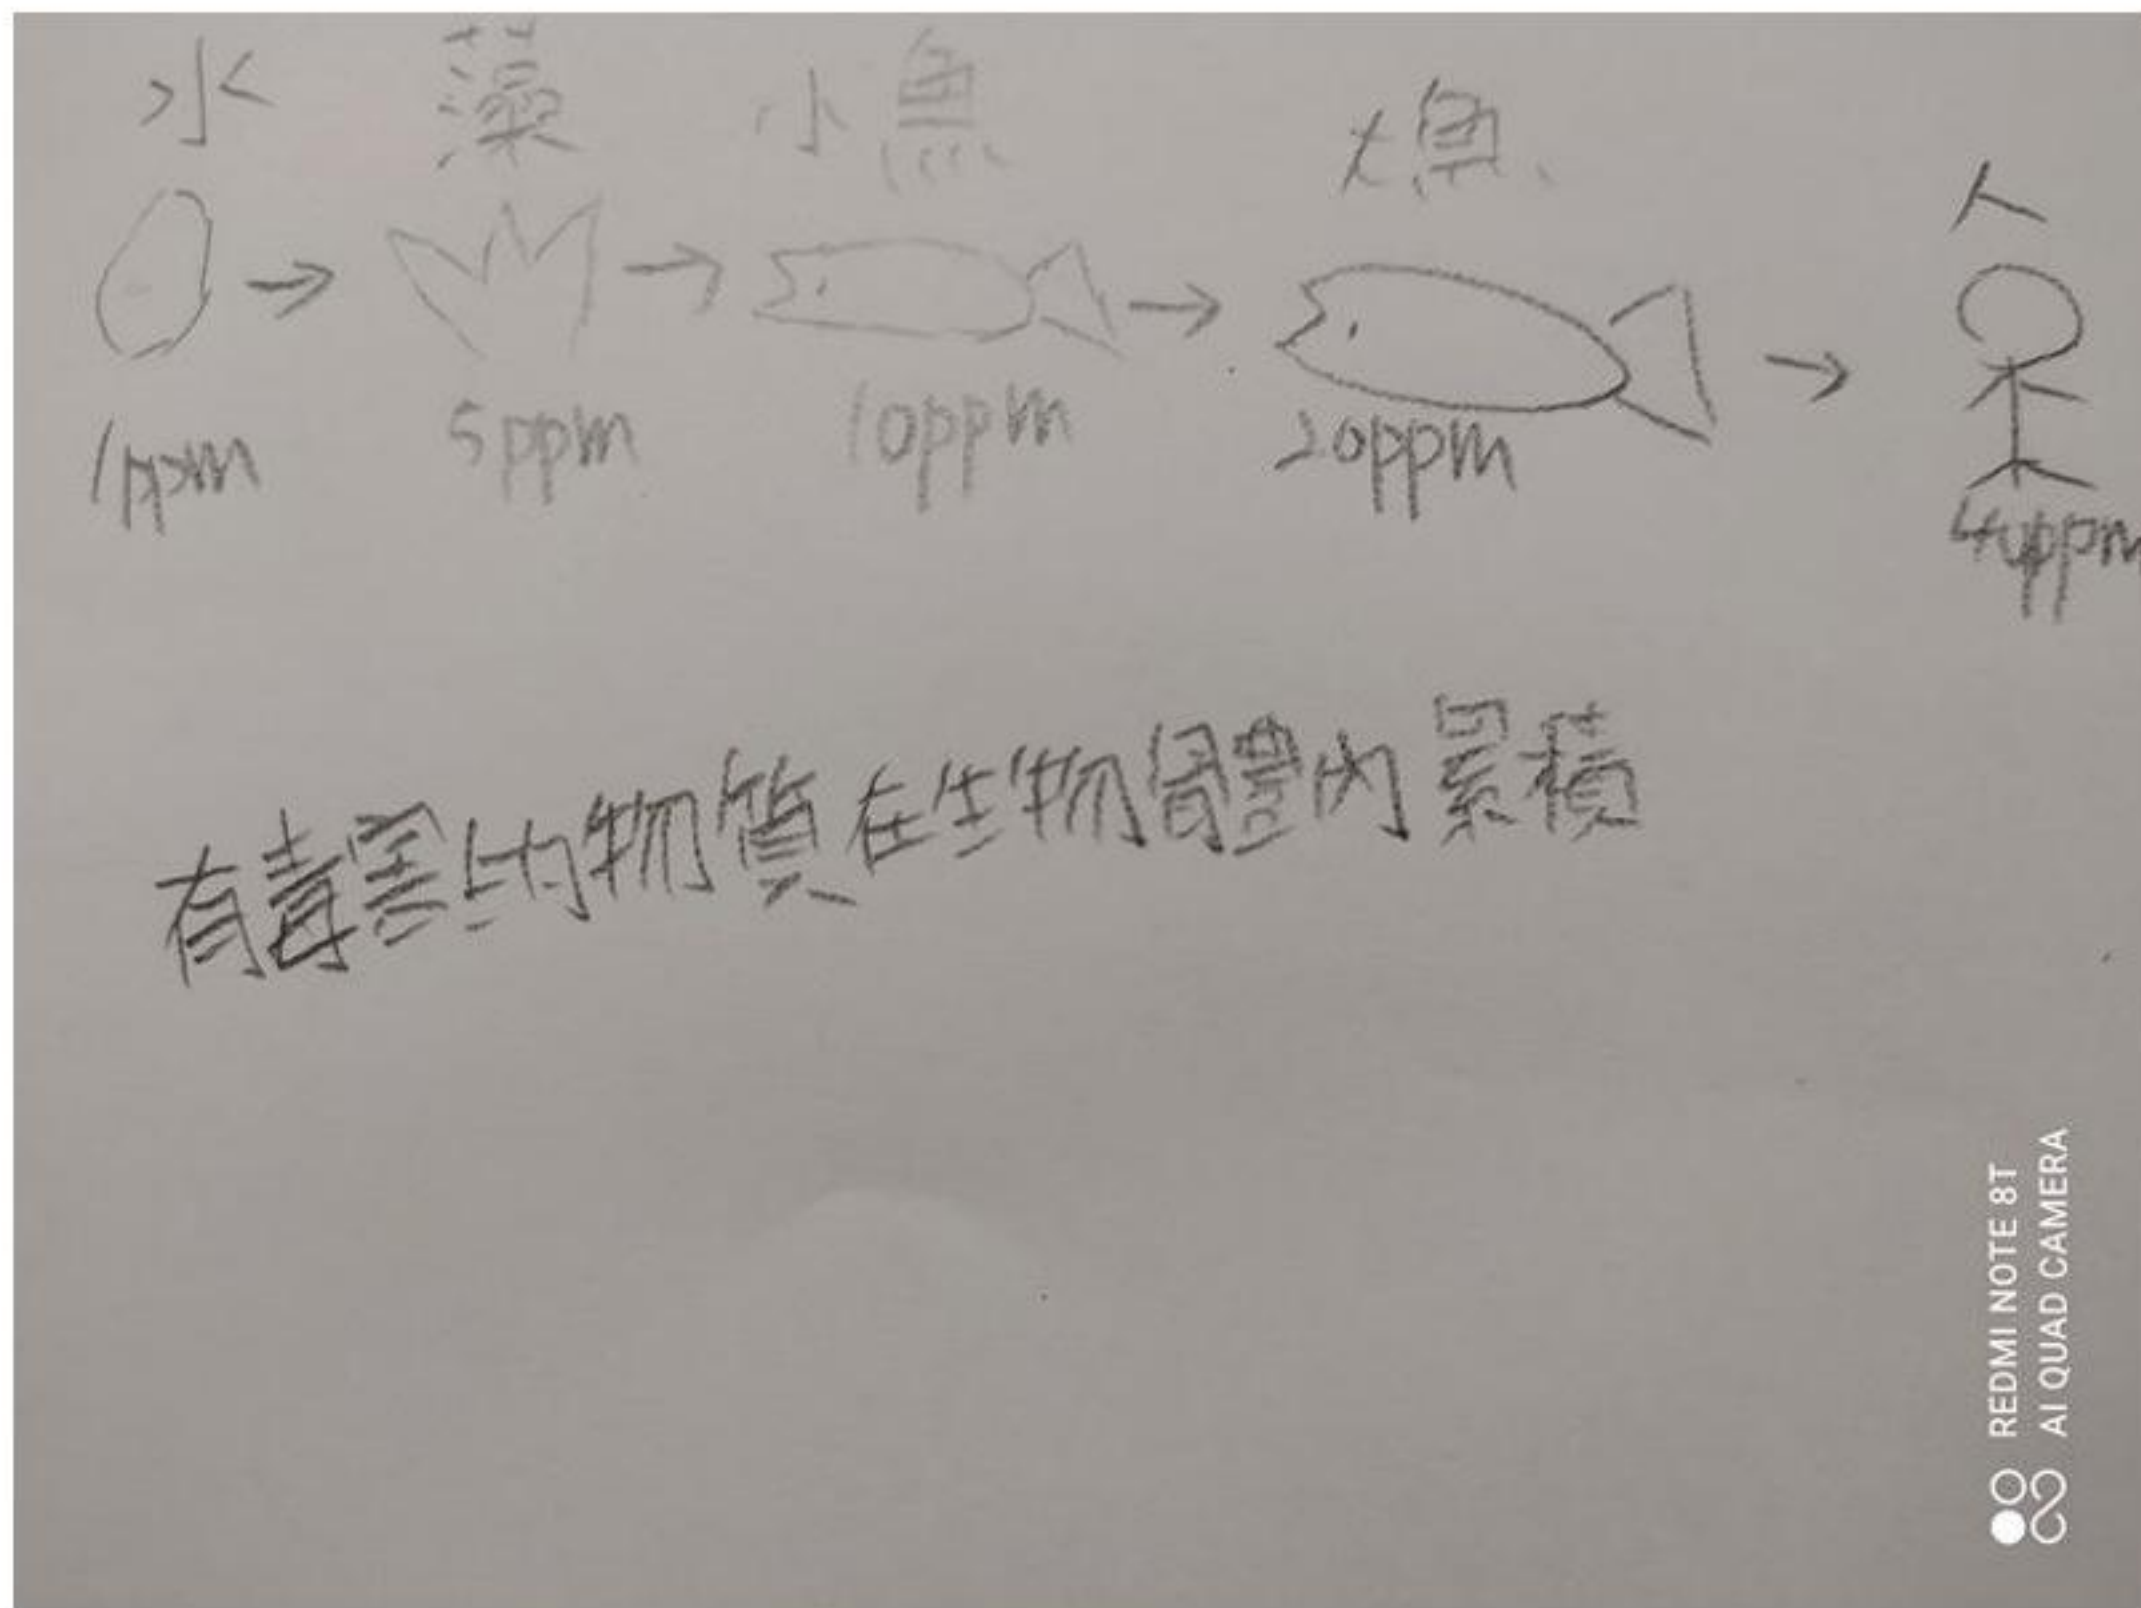 水 藻 小魚 大魚 人
1ppm 5ppm 10ppm 20ppm 40ppm
有毒害的物質在生物體內累積
REDMI NOTE 8T
AI QUAD CAMERA